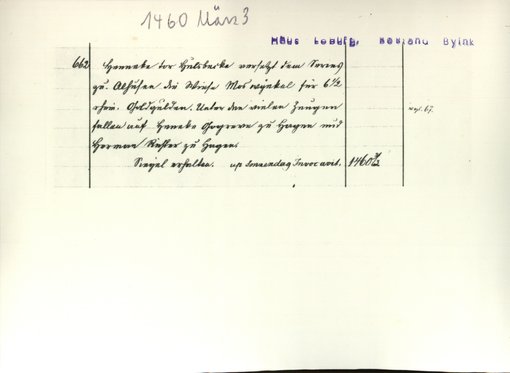 1460 März 3
Haus Loburg, Bestand Byink
662 Henneke tor Hulsbecke versetzt dem Sweneg
zu Alhusen die Wiese Moswynkel für 6 1/2
rhein. Goldgulden. Unter den vielen Zeugen
fallen auf Henneke Gogreve zu Hagen und
Herman Richter zu Hagen.
Siegel erhalten. up sonnendag Invocavit. 1460 3/3